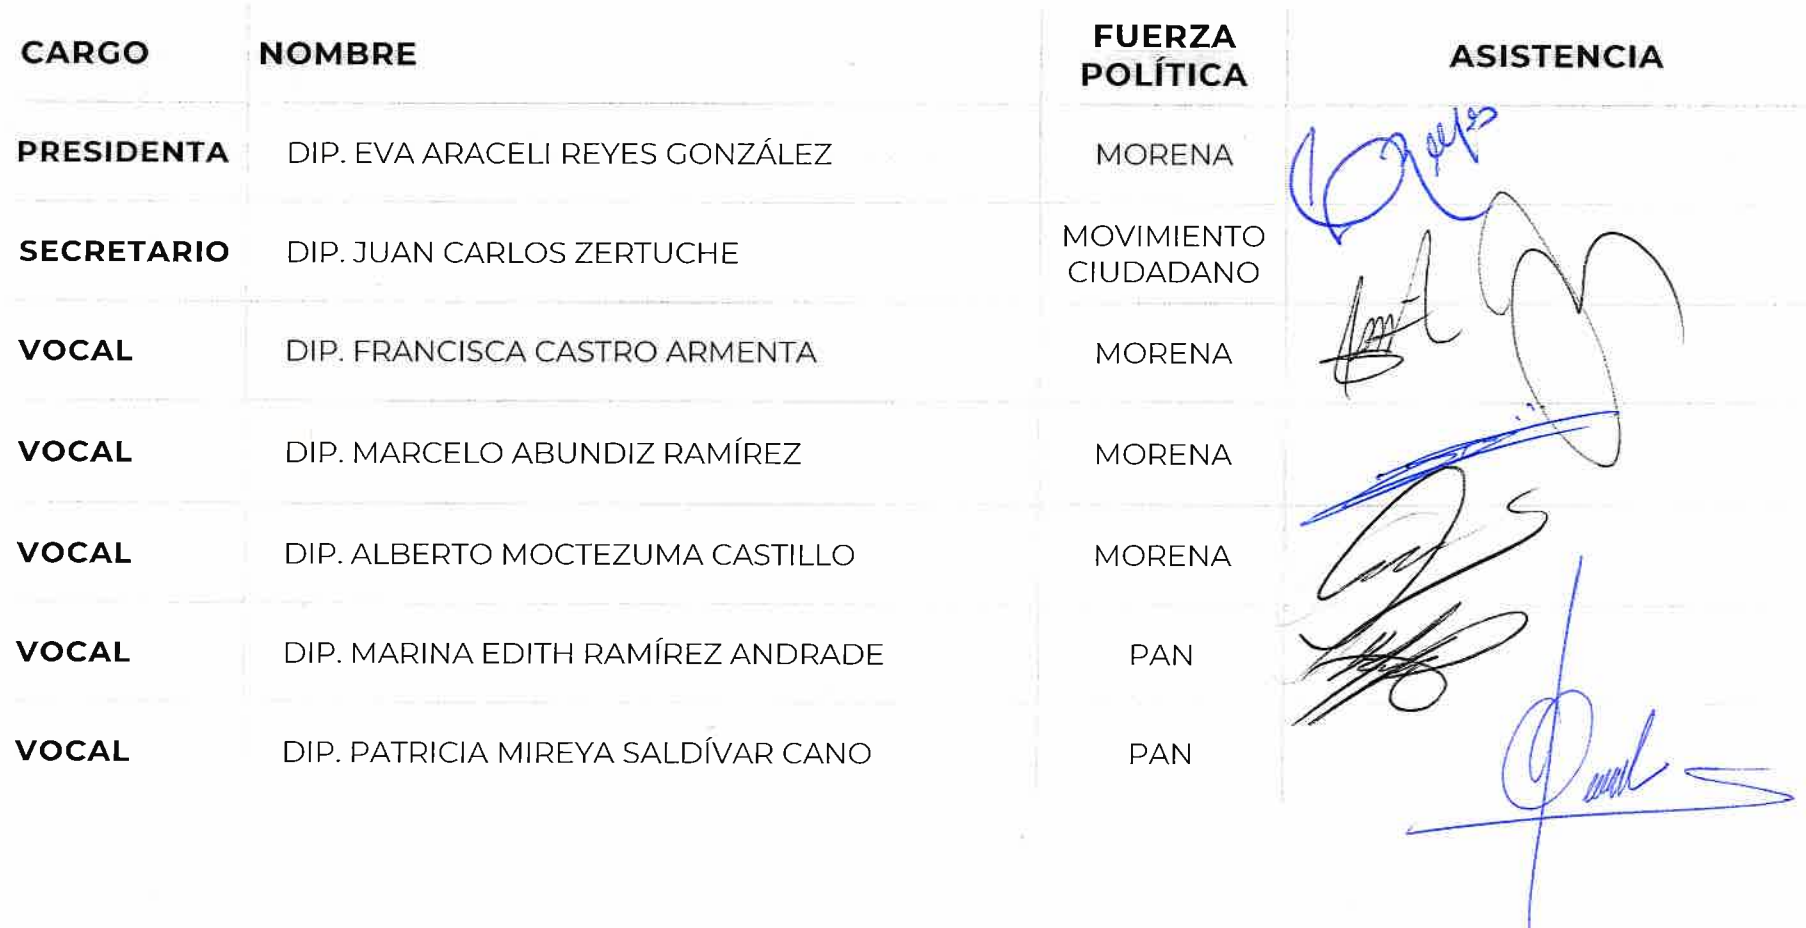 CARGO NOMBRE FUERZA POLÍTICA ASISTENCIA
PRESIDENTA DIP. EVA ARACELI REYES GONZÁLEZ MORENA
SECRETARIO DIP. JUAN CARLOS ZERTUCHE MOVIMIENTO CIUDADANO
VOCAL DIP. FRANCISCA CASTRO ARMENTA MORENA
VOCAL DIP. MARCELO ABUNDIZ RAMÍREZ MORENA
VOCAL DIP. ALBERTO MOCTEZUMA CASTILLO MORENA
VOCAL DIP. MARINA EDITH RAMÍREZ ANDRADE PAN
VOCAL DIP. PATRICIA MIREYA SALDÍVAR CANO PAN